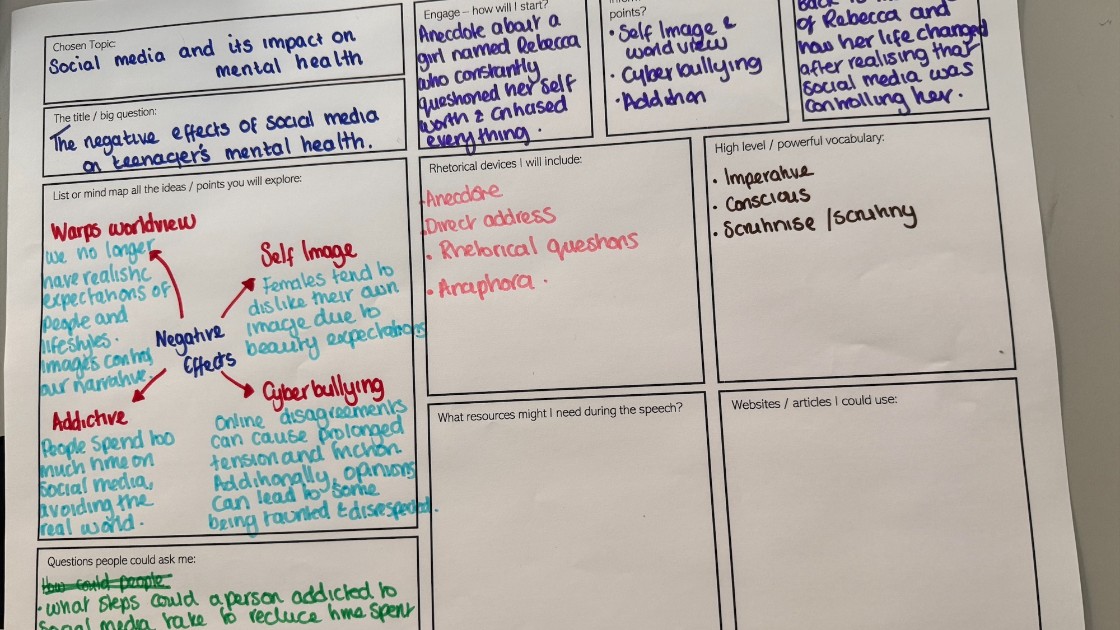 Chosen Topic:
Social media and its impact on
mental health
The title / big question:
The negative effects of social media
on teenager's mental health.
List or mind map all the ideas / points you will explore:
Warps worldview
we no longer
have realistic
expectations of
people and
lifestyles.
images control
our narrative.
Self Image
Females tend to
dislike their own
image due to
beauty expectations
Negative
Effects
Addictive
People spend too
much time on
social media,
avoiding the
real world.
Cyberbullying
Online disagreements
can cause prolonged
tension and friction.
Additionally, opinions
can lead to some
being taunted & disrespected.
Questions people could ask me:
How could people
• what steps could a person addicted to
social media take to reduce time spent
Engage – how will I start?
Anecdote about a
girl named Rebecca
who constantly
questioned her self
worth &
everything.
points?
• Self Image &
world view
• Cyberbullying
• Addition
of Rebecca and
how her life changed
after realising that
social media was
controlling her.
Rhetorical devices I will include:
• Anecdote
• Direct address
• Rhetorical questions
• Anaphora.
High level / powerful vocabulary:
• Imperative
• Conscious
• Scrutinise / scrutiny
What resources might I need during the speech?
Websites / articles I could use: